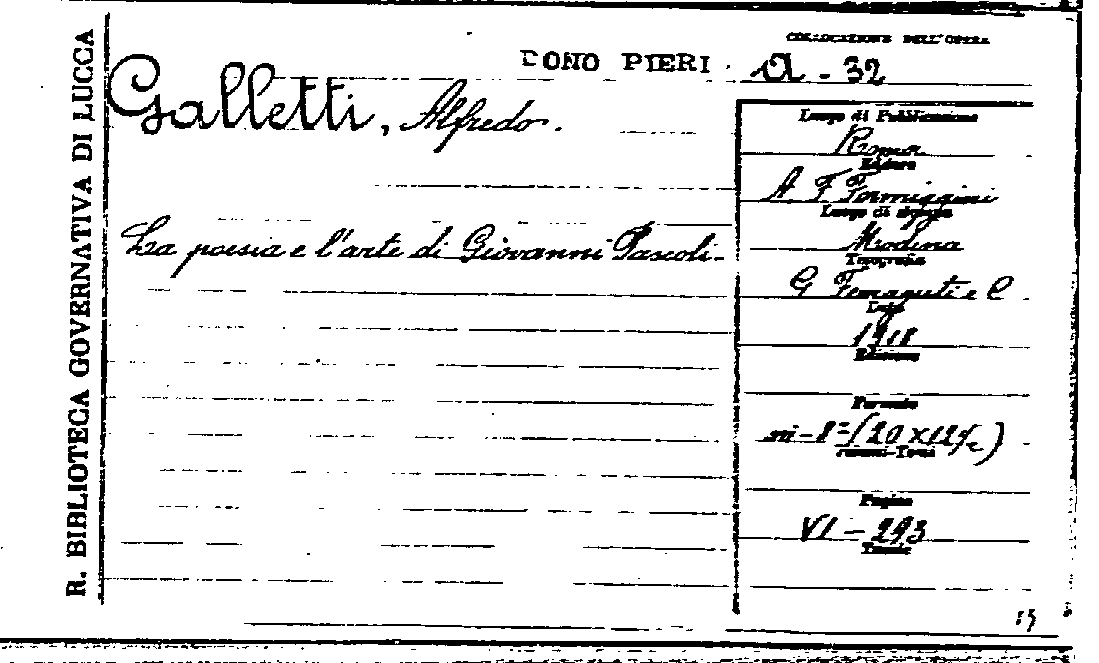 R. BIBLIOTECA GOVERNATIVA DI LUCCA
COLLOCAZIONE DELL'OPERA
DONO PIERI. a - 32
Galletti, Alfredo.
La poesia e l'arte di Giovanni Pascoli.
Luogo di Pubblicazione
Roma
Editore
A. F. Formiggini
Luogo di stampa
Modena
Tipografia
G. Ferraguti e C.
1918
Edizione
Formato
in-8º (20 x 12½ c)
Pagine
VI - 293